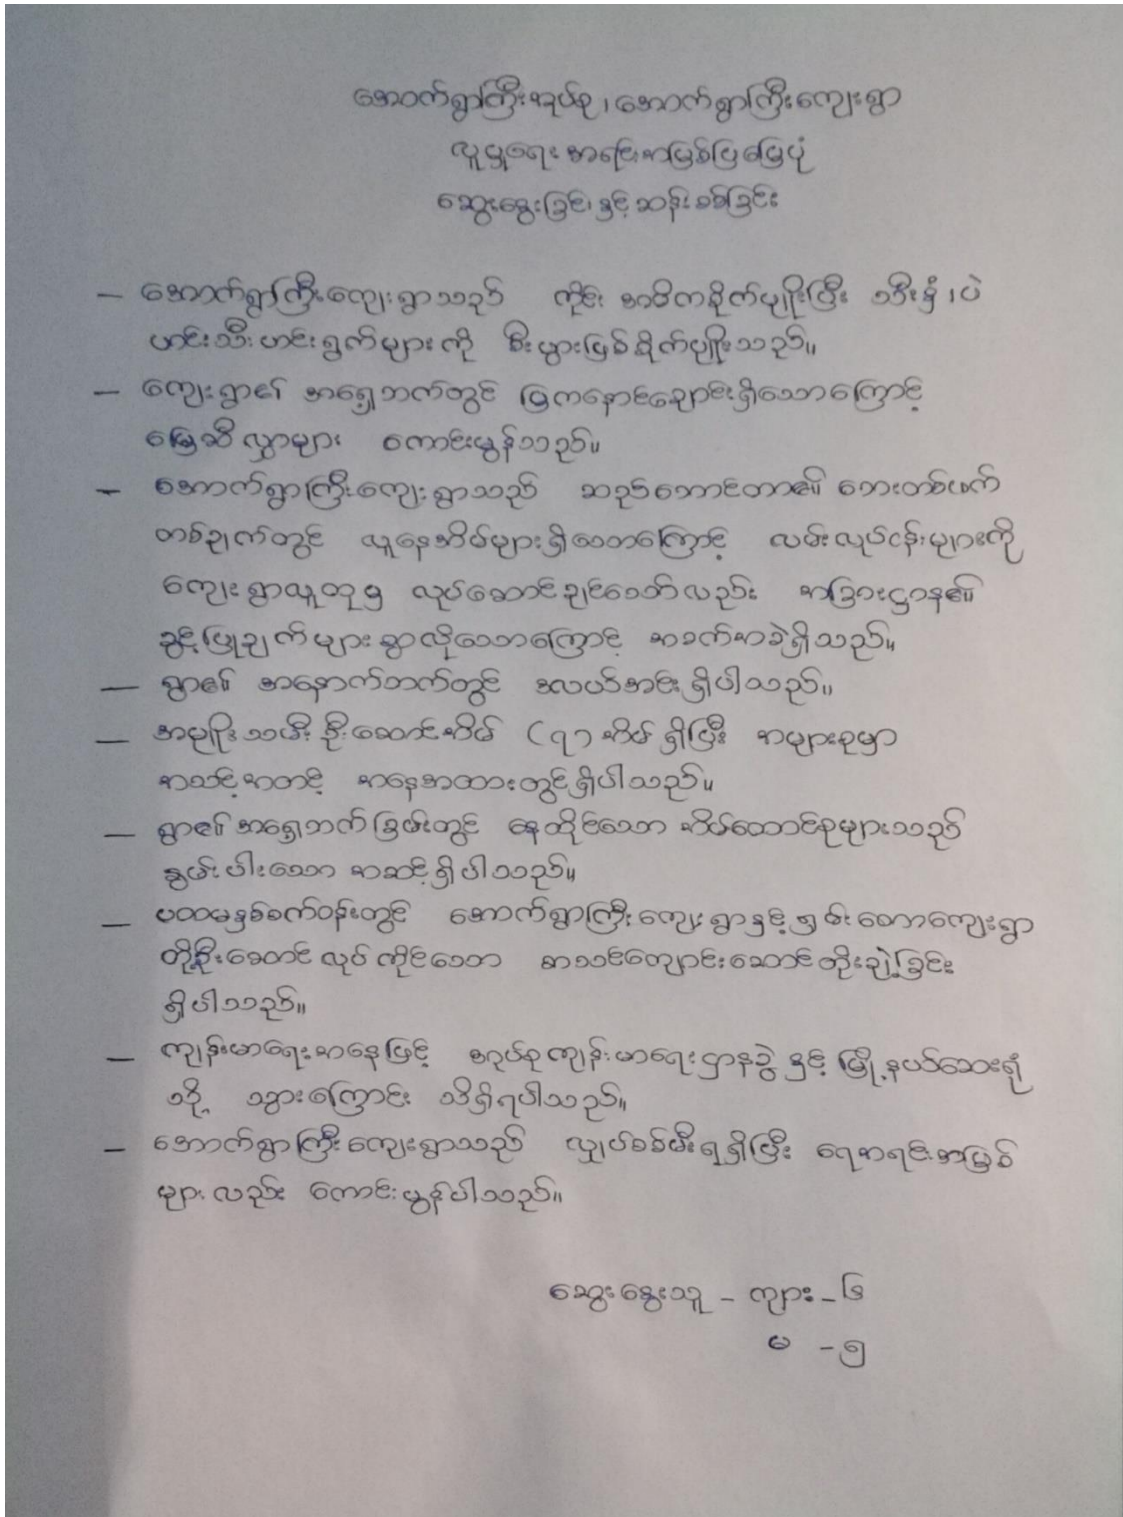 အောက်ရွာကြီးအုပ်စု၊ အောက်ရွာကြီးကျေးရွာ
လူမှုရေး အရင်းအမြစ်ပြမြေပုံ
ဆွေးနွေးခြင်းနှင့် ဆန်းစစ်ခြင်း
– အောက်ရွာကြီးကျေးရွာသည် ကိုင်း အဓိကစိုက်ပျိုးပြီး သီးနှံ၊ ပဲ
ဟင်းသီးဟင်းရွက်များကို စီးပွားဖြစ်စိုက်ပျိုးသည်။
– ကျေးရွာ၏ အရှေ့ဘက်တွင် မြကနောင်ချောင်းရှိသောကြောင့်
မြေဆီလွှာများ ကောင်းမွန်သည်။
– အောက်ရွာကြီးကျေးရွာသည် ဆည်ဘောင်တာ၏ ဘေးတစ်ဖက်
တစ်ချက်တွင် လူနေအိမ်များရှိသောကြောင့် လမ်းလုပ်ငန်းများကို
ကျေးရွာလူထုမှ လုပ်ဆောင်ချင်သော်လည်း အခြားဌာန၏
ခွင့်ပြုချက်များစွာလိုသောကြောင့် အခက်အခဲရှိသည်။
– ရွာ၏ အနောက်ဘက်တွင် လယ်အင်းရှိပါသည်။
– အမျိုးသမီးဦးဆောင်အိမ် (၇) အိမ်ရှိပြီး အများစုမှာ
အသင့်အတင့် အနေအထားတွင်ရှိပါသည်။
– ရွာ၏အရှေ့ဘက်ခြမ်းတွင် နေထိုင်သော အိမ်ထောင်စုများသည်
နွမ်းပါးသော အဆင့်ရှိပါသည်။
– ပထမနှစ်စက်ဝန်းတွင် အောက်ရွာကြီးကျေးရွာနှင့်ရှမ်းတောကျေးရွာ
တို့ဦးဆောင်လုပ်ကိုင်သော စာသင်ကျောင်းဆောင်တိုးချဲ့ခြင်း
ရှိပါသည်။
– ကျန်းမာရေးအနေဖြင့် အုပ်စုကျန်းမာရေးဌာနခွဲနှင့် မြို့နယ်ဆေးရုံ
သို့ သွားကြောင်း သိရှိရပါသည်။
– အောက်ရွာကြီးကျေးရွာသည် လျှပ်စစ်မီးရရှိပြီး ရေအရင်းအမြစ်
များလည်း ကောင်းမွန်ပါသည်။
ဆွေးနွေးသူ – ကျား – ၆
မ – ၅